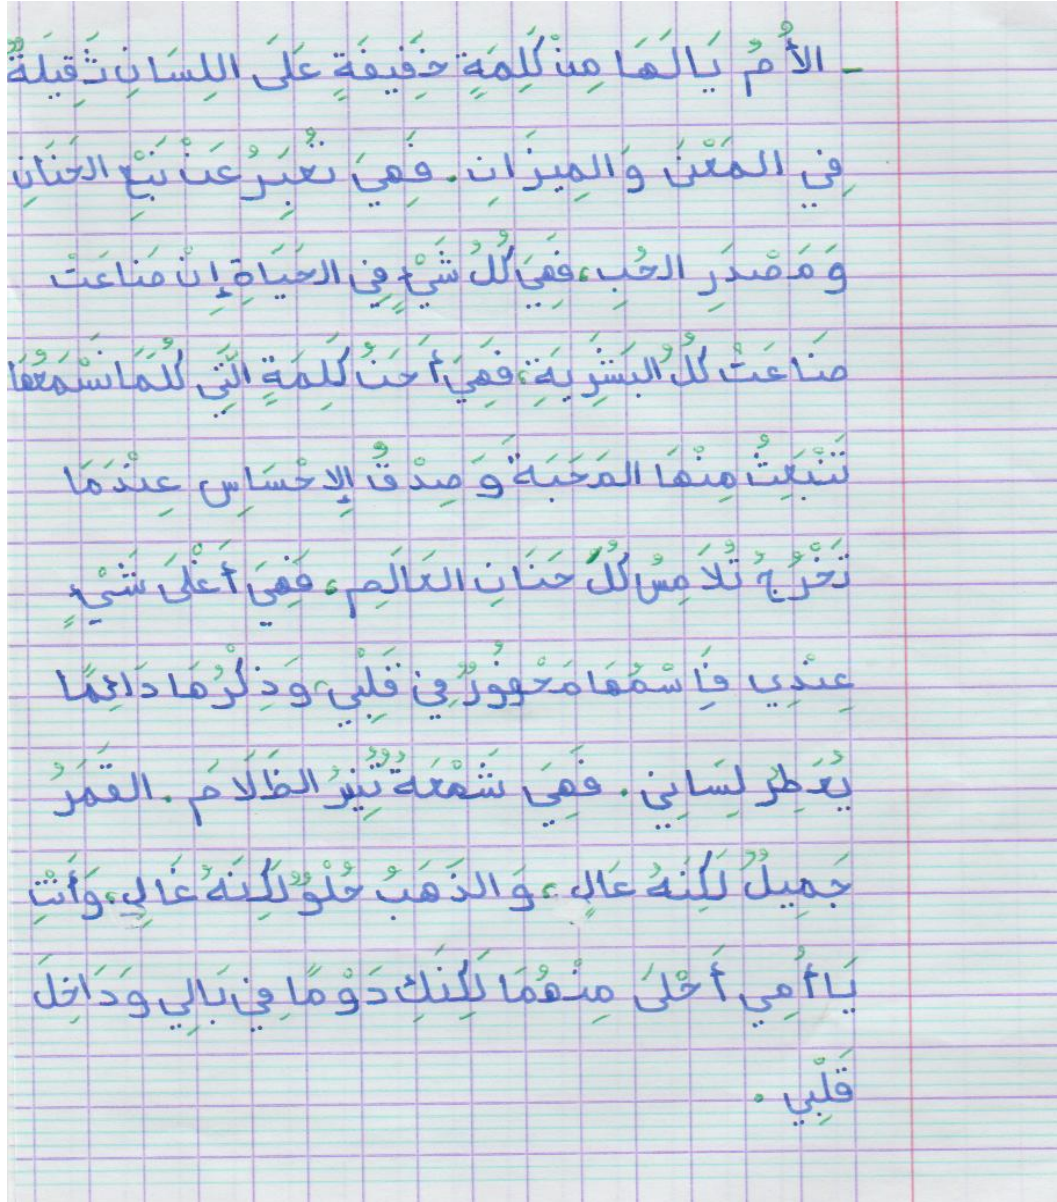 - الأُمُ يَالَهَا مِنْ كَلِمَةٍ خَفِيفَةٍ عَلَى اللِسَانِ ثَقِيلَةٌ
فِي المَعْنَى وَالمِيزَانِ. فَهِيَ تُعْبَرُ عَنْ نَبْعِ الحَنَانِ
وَمَصْدَرِ الحُبِ، فَهِيَ كُلُ شَيْءٍ فِي الحَيَاةِ إِنْ ضَاعَتْ
ضَاعَتْ كُلُ البَشَرِيَةِ، فَهِيَ أَحَنُ كَلِمَةٍ الَتِي كُلَمَا نَسْمَعُهَا
تَنْبَعِثُ مِنْهَا المَحَبَةُ وَصِدْقُ الإِحْسَاسِ عِنْدَمَا
تَخْرُجُ تُلاَمِسُ كُلَ حَنَانِ العَالَمِ، فَهِيَ أَغْلَى شَيْءٍ
عِنْدِي فَاِسْمُهَا مَحْفُورٌ فِي قَلْبِي، وَذِكْرُهَا دَائِمًا
يُعَطِرُ لِسَانِي. فَهِيَ شَمْعَةٌ تُنِيرُ الظَلَامَ. القَمَرُ
جَمِيلٌ لَكِنَهُ عَالِي، وَالذَهَبُ حُلْوٌ لَكِنَهُ غَالِي، وَأَنْتِ
يَا أُمِي أَحْلَى مِنْهُمَا لَكِنَكِ دَوْمًا فِي بَالِي وَدَاخِلَ
قَلْبِي.